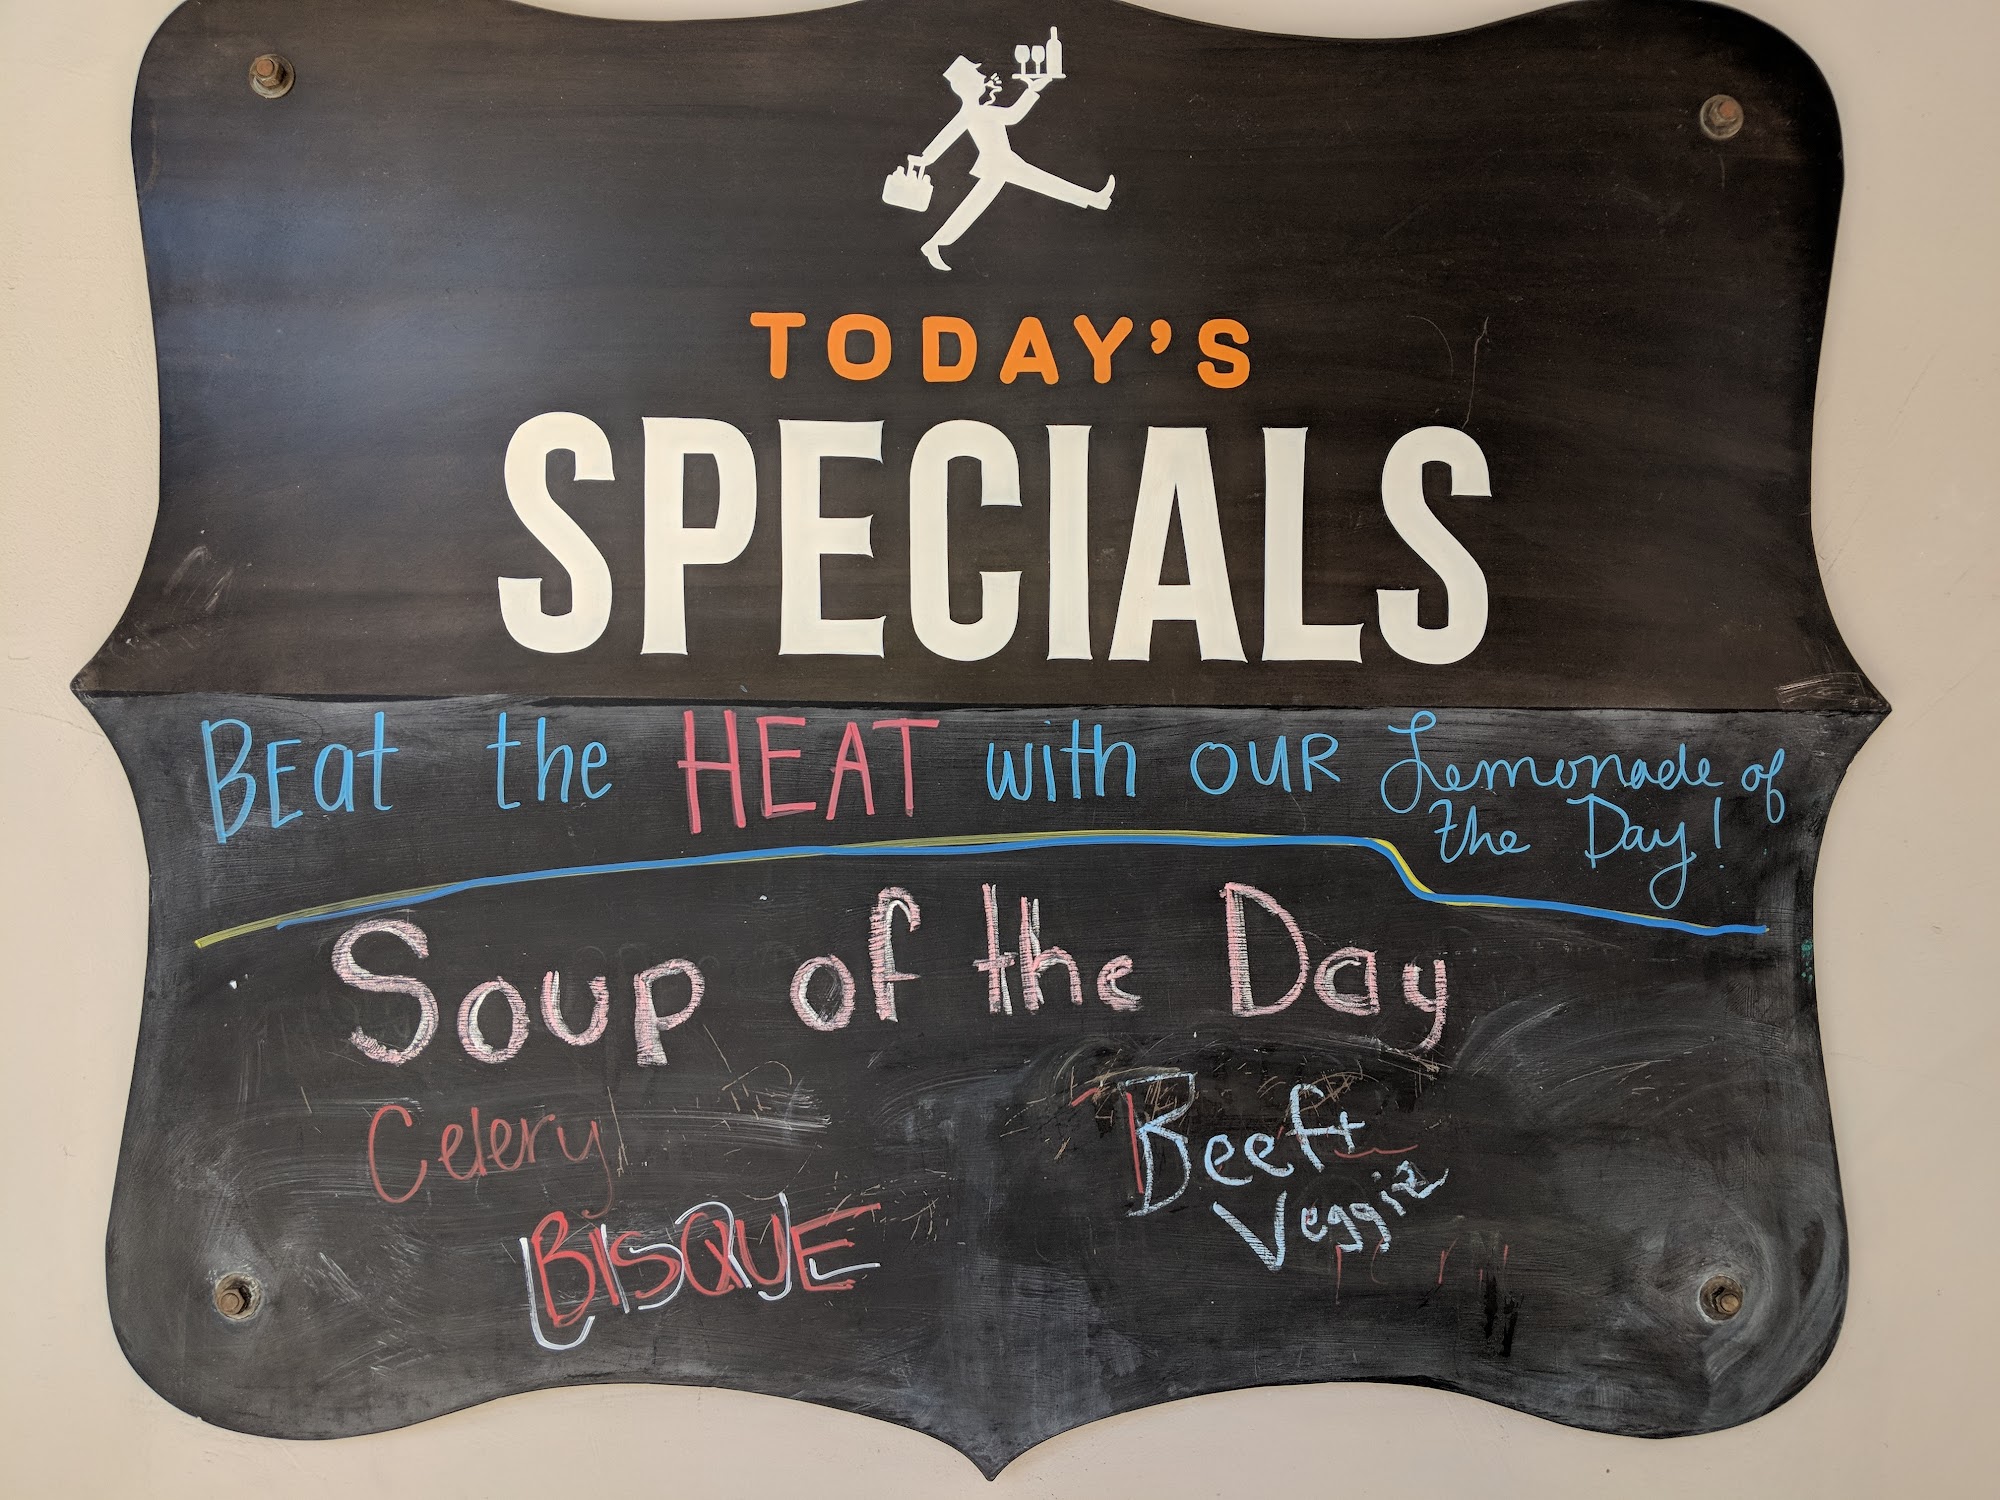 TODAY'S
SPECIALS
BEat the HEAT with OUR Lemonade of
the Day!
Soup of the Day
Celery
BISQUE
Beef +
Veggie